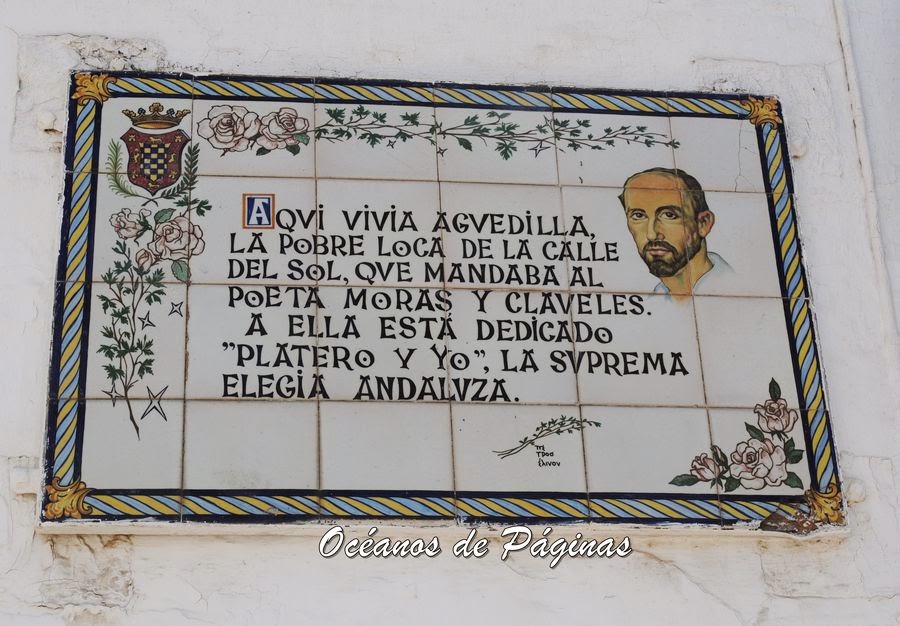 AQVI VIVIA AGVEDILLA,
LA POBRE LOCA DE LA CALLE
DEL SOL, QVE MANDABA AL
POETA MORAS Y CLAVELES.
A ELLA ESTÁ DEDICADO
"PLATERO Y YO", LA SVPREMA
ELEGIA ANDALVZA.
Océanos de Páginas